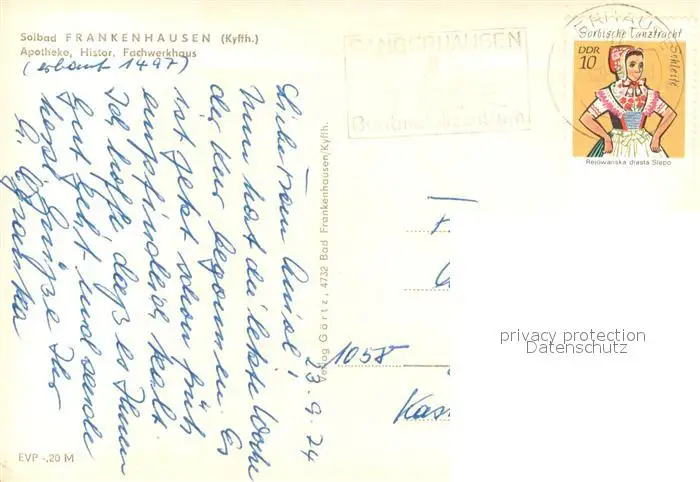 Solbad FRANKENHAUSEN (Kyffh.)
Apotheke, Histor. Fachwerkhaus
(erbaut 1497)
SANGERHAUSEN
Sorbische Tanztracht
DDR
10
Schleife
Rejowanska drasta Slepo
23.9.74
Liebe Frau
Nun hat die letzte Woche
der Kur begonnen. Es
ist jetzt schon früh
empfindlich kalt.
Ich hoffe daß es Ihnen
gut geht und sende
herzl. Grüße Ihr
Verlag Görtz, 4732 Bad Frankenhausen/Kyffh.
1058
Kass
privacy protection
Datenschutz
EVP -,20 M